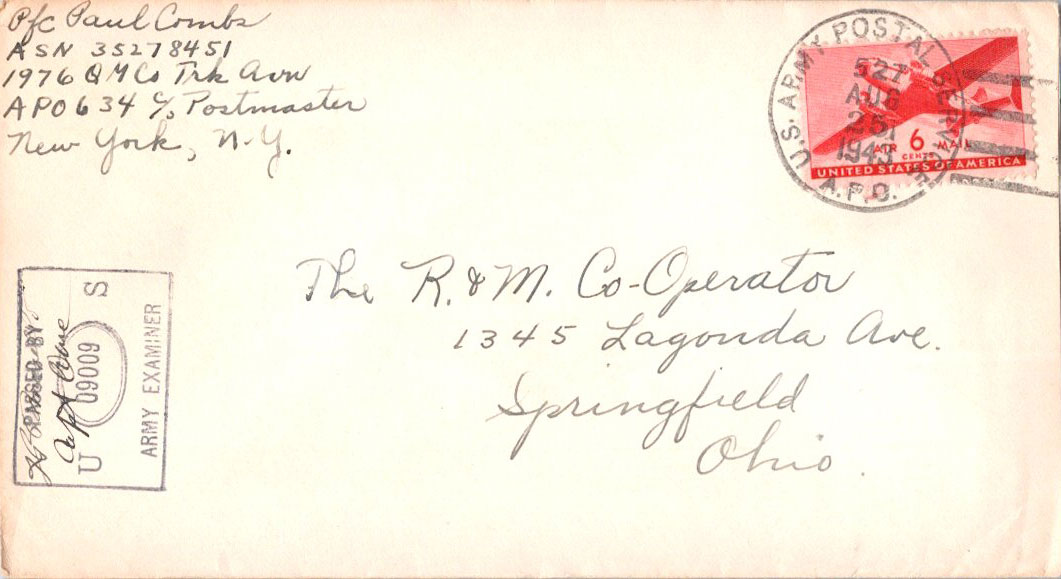 Pfc Paul Combs
ASN 35278451
1976 QM Co Trk Avn
APO 634 c/o Postmaster
New York, N.Y.
U.S. ARMY POSTAL SERVICE
527
AUG
25
1943
A.P.O.
AIR 6 MAIL
CENTS
UNITED STATES OF AMERICA
The R. & M. Co-Operator
1345 Lagonda Ave.
Springfield
Ohio.
PASSED BY
U 09009 S
ARMY EXAMINER